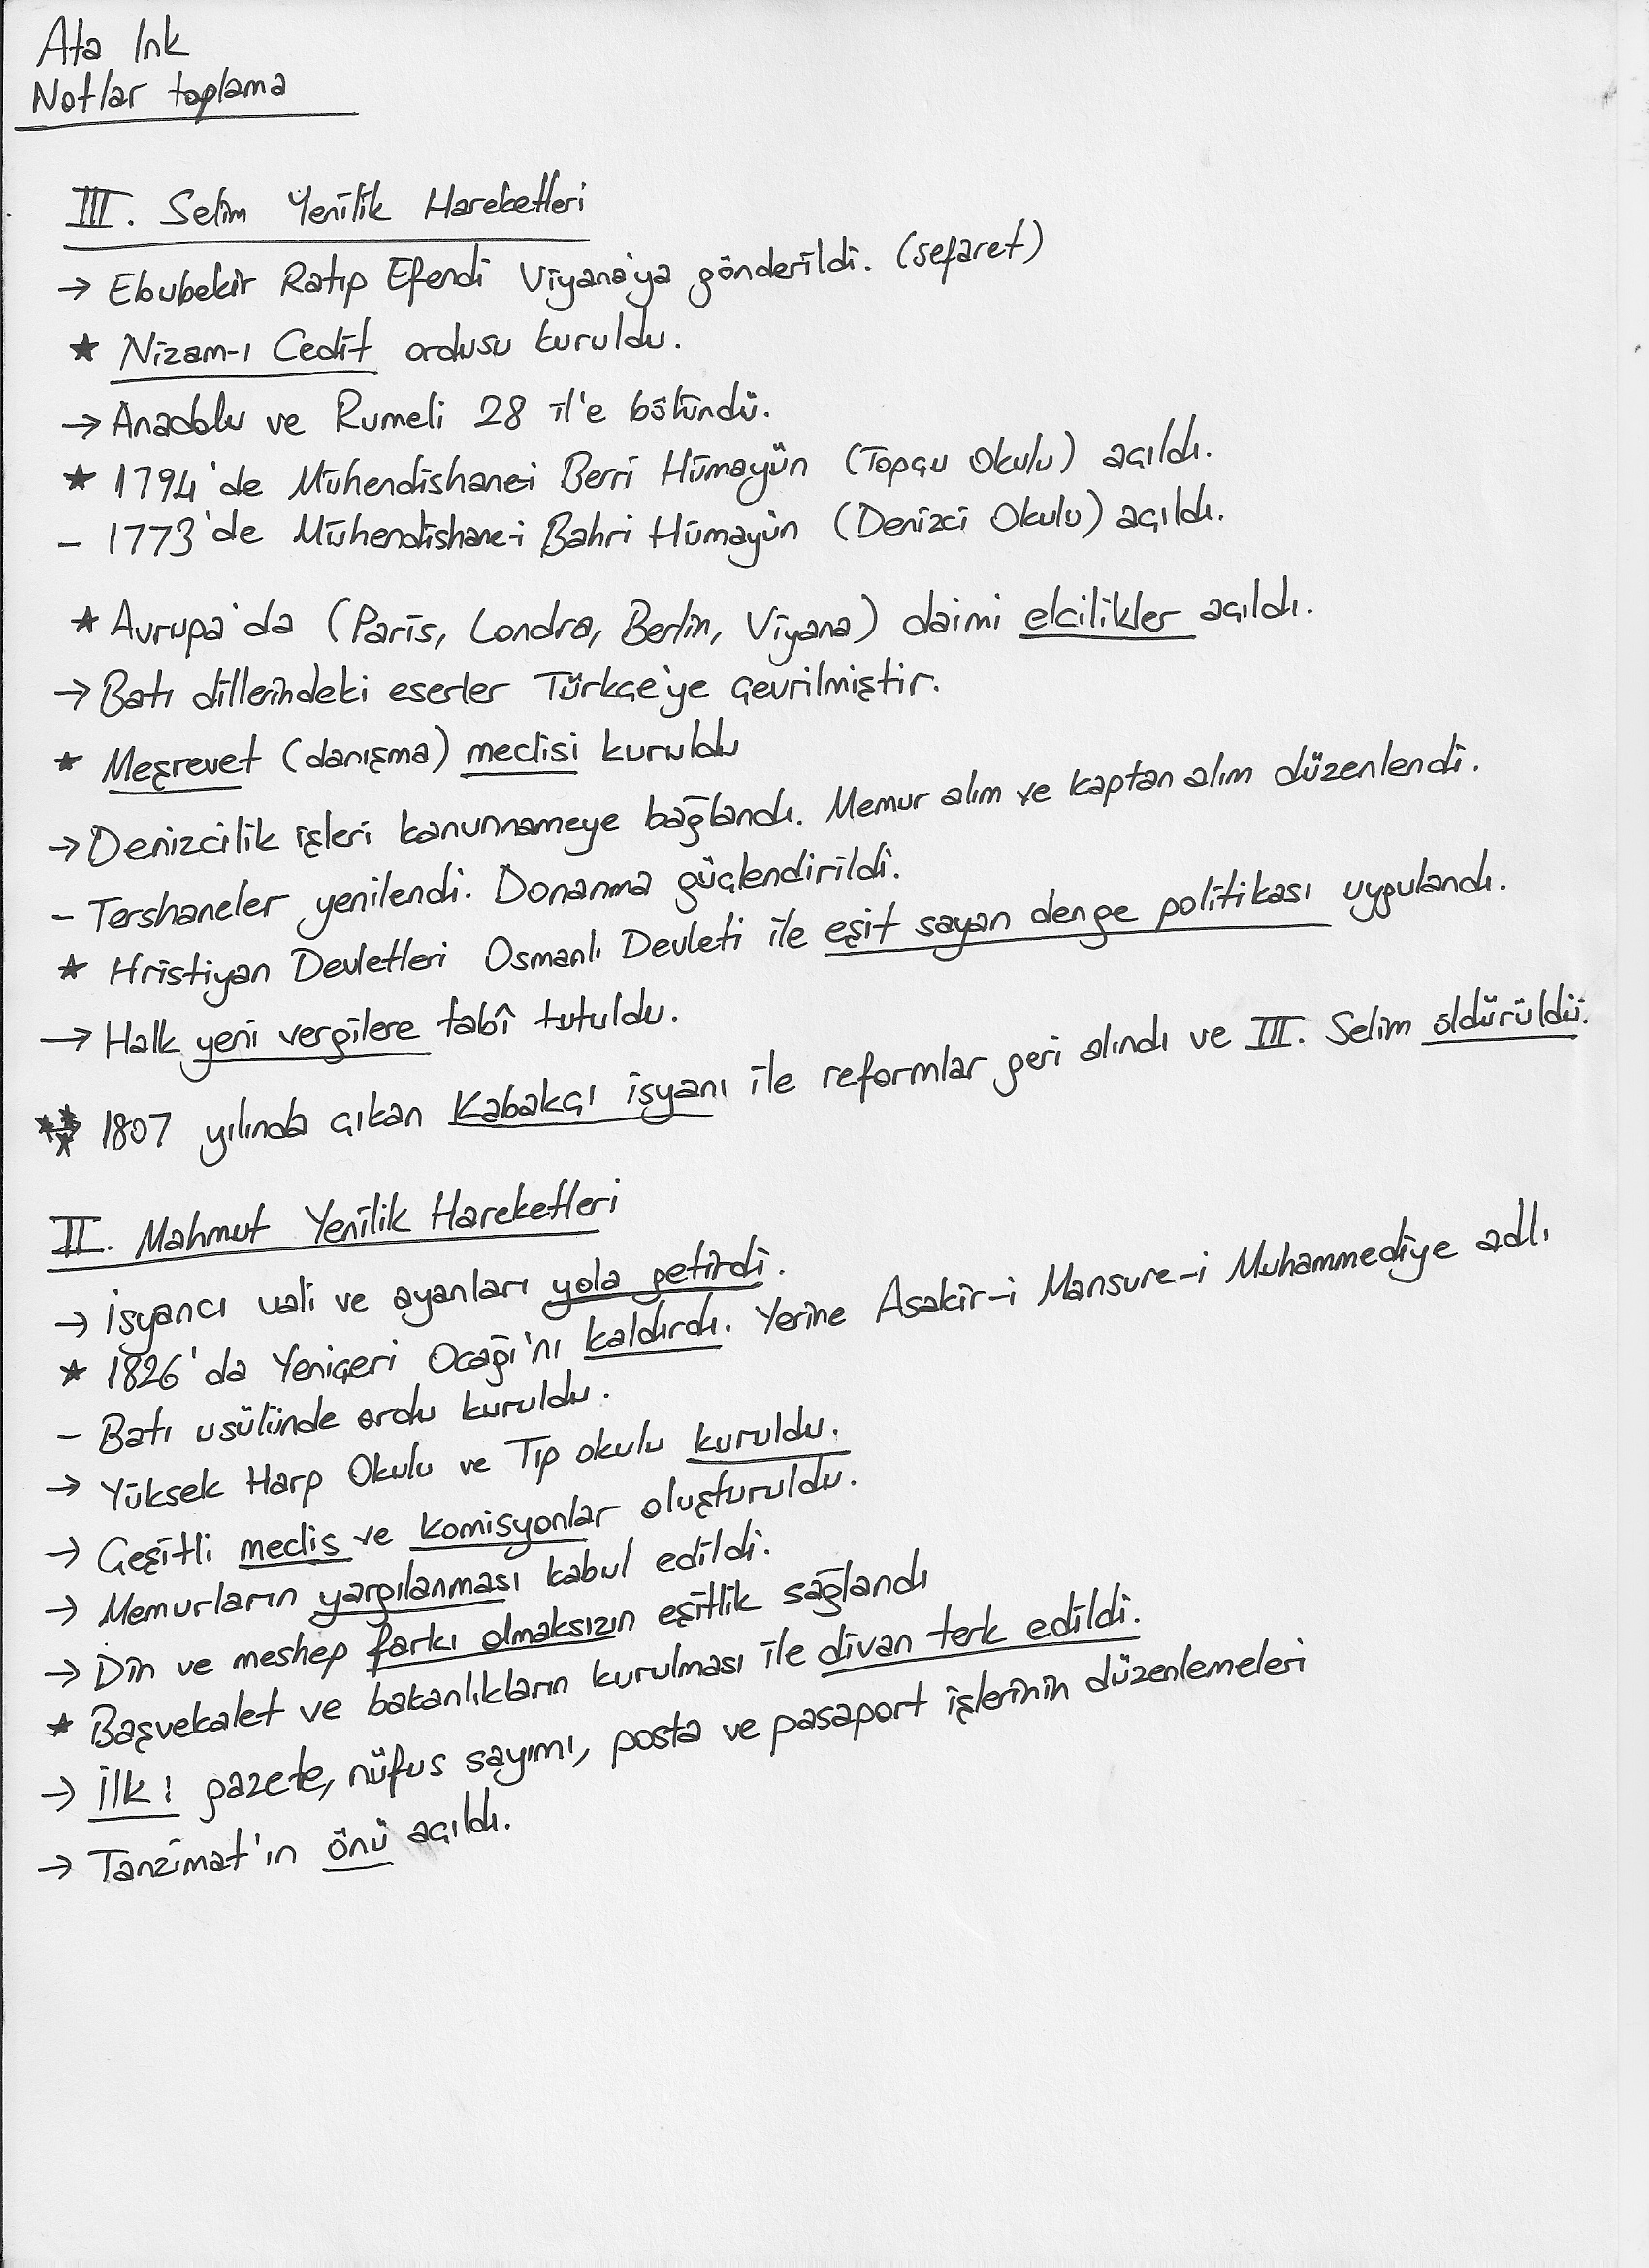 Ata Ink
Notlar toplama
III. Selim Yenilik Hareketleri
→ Ebubekir Ratıp Efendi Viyana'ya gönderildi. (sefaret)
★ Nizam-ı Cedit ordusu kuruldu.
→ Anadolu ve Rumeli 28 il'e bölündü.
★ 1794'de Mühendishane-i Berri Hümayün (Topçu Okulu) açıldı.
- 1773'de Mühendishane-i Bahri Hümayün (Denizci Okulu) açıldı.
★ Avrupa'da (Paris, Londra, Berlin, Viyana) daimi elcilikler açıldı.
→ Batı dillerindeki eserler Türkçe'ye çevrilmiştir.
★ Meşrevet (danışma) meclisi kuruldu
→ Denizcilik işleri kanunnameye bağlandı. Memur alım ve kaptan alım düzenlendi.
- Tershaneler yenilendi. Donanma güçlendirildi.
★ Hristiyan Devletleri Osmanlı Devleti ile eşit sayan denge politikası uygulandı.
→ Halk yeni vergilere tabî tutuldu.
★★★ → 1807 yılında çıkan Kabakçı isyanı ile reformlar geri alındı ve III. Selim öldürüldü.
II. Mahmut Yenilik Hareketleri
→ İsyancı vali ve ayanları yola getirdi.
★ 1826'da Yeniçeri Ocağı'nı kaldırdı. Yerine Asakir-i Mansure-i Muhammediye adlı
- Batı usülünde ordu kuruldu.
→ Yüksek Harp Okulu ve Tıp okulu kuruldu.
→ Çeşitli meclis ve komisyonlar oluşturuldu.
→ Memurların yargılanması kabul edildi.
→ Din ve meshep farkı olmaksızın eşitlik sağlandı
★ Başvekalet ve bakanlıkların kurulması ile divan terk edildi.
→ İlk : gazete, nüfus sayımı, posta ve pasaport işlerinin düzenlemeleri
→ Tanzimat'ın önü açıldı.